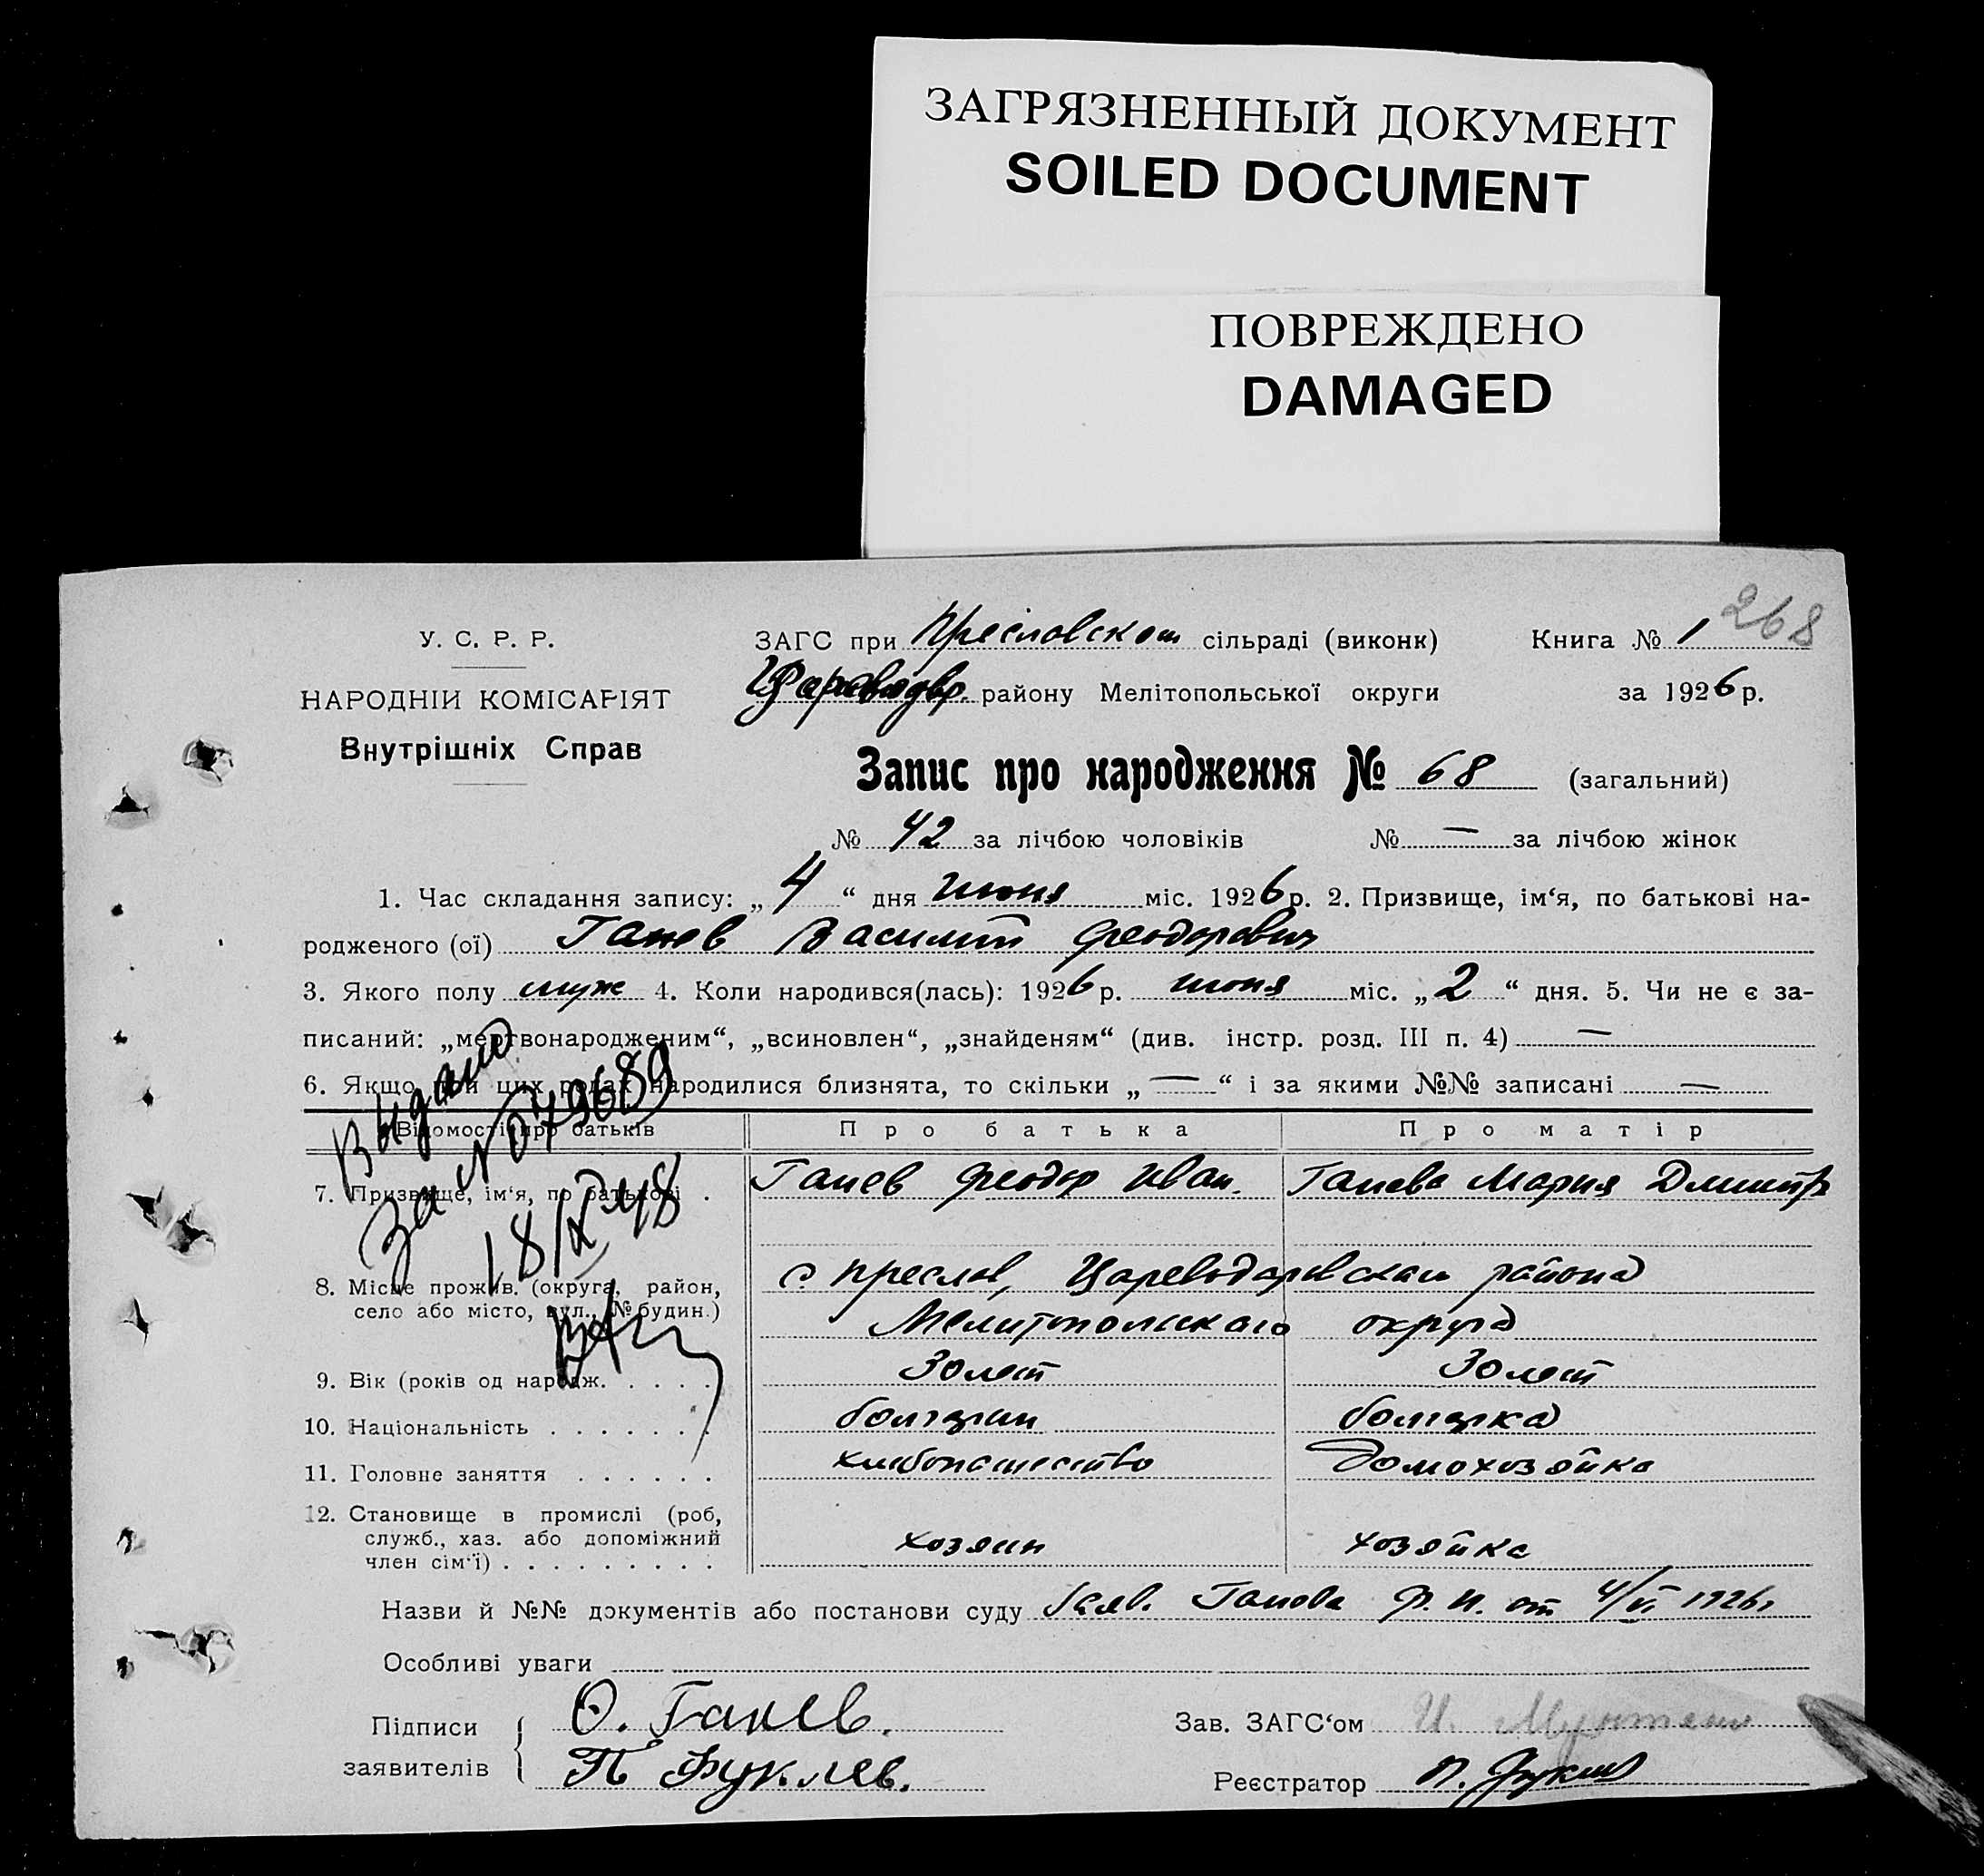 ЗАГРЯЗНЕННЫЙ ДОКУМЕНТ
SOILED DOCUMENT
ПОВРЕЖДЕНО
DAMAGED
268
У. С. Р. Р.
НАРОДНІЙ КОМІСАРІЯТ
Внутрішніх Справ
ЗАГС при Преславском сільраді (виконк) Книга № 1
району Мелітопольської округи за 1926 р.
Запис про народження № 68 (загальний)
№ 42 за лічбою чоловіків № — за лічбою жінок
1. Час складання запису: „ 4 “ дня июня міс. 1926 р. 2. Призвище, ім‘я, по батькові на-
родженого (ої) Ганев Василий Феодорович
3. Якого полу муж 4. Коли народився(лась): 1926 р. июня міс. „ 2 “ дня. 5. Чи не є за-
писаний: „мертвонародженим“, „всиновлен“, „знайденям“ (див. інстр. розд. III п. 4) —
6. Якщо при цих родах народилися близнята, то скільки „ — “ і за якими №№ записані —
Відомості про батьків Про батька Про матір
7. Призвище, ім‘я, по батькові . Ганев Феодор Иван. Ганева Мария Димитр
8. Місце прожив. (округа, район, с. Преслав, Цареводаровскаго района
село або місто, вул., № будин.) Мелитопольскаго округа
9. Вік (років од народж. . . . . 30 лет 30 лет
10. Національність . . . . . . . болгарин болгарка
11. Головне заняття . . . . . . хлебопашество домохозяйка
12. Становище в промислі (роб,
служб., хаз. або допоміжний
член сім‘ї) . . . . . . . . . хозяин хозяйка
Выдано
За № 079689
18/IX 48
Назви й №№ документів або постанови суду Заяв. Ганева Ф. И. от 4/VI 1926 г
Особливі уваги
Підписи Ѳ. Ганев. Зав. ЗАГС‘ом
заявителів П Фуклев. Реєстратор П. Фуклев